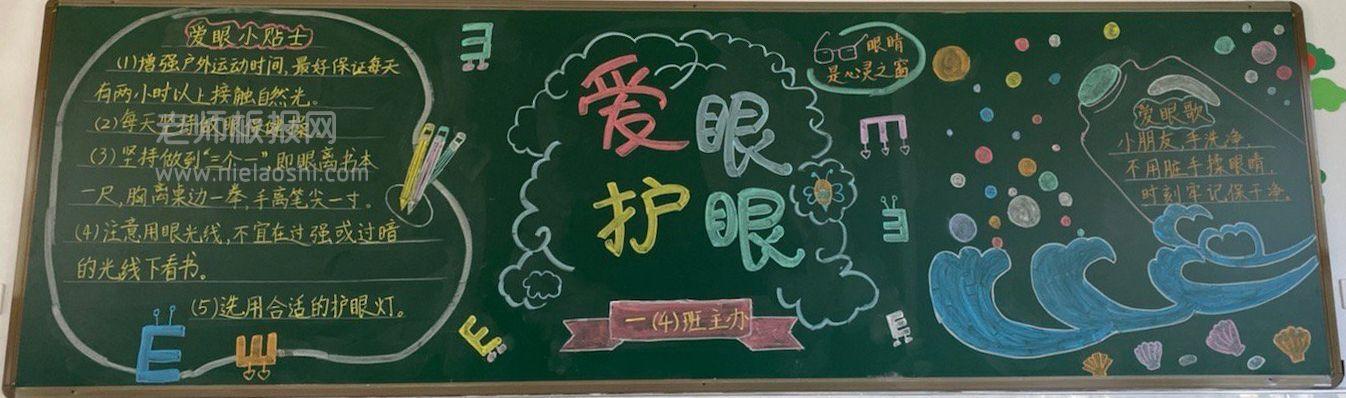 爱眼小贴士
(1)增强户外运动时间,最好保证每天
有两小时以上接触自然光。
(2)每天坚持做眼保健操
(3)坚持做到“三个一”即眼离书本
一尺,胸离桌边一拳,手离笔尖一寸。
(4)注意用眼光线,不宜在过强或过暗
的光线下看书。
(5)选用合适的护眼灯。
老师板报网
www.nielaoshi.com
爱眼
护眼
一(4)班主办
眼睛
是心灵之窗
爱眼歌
小朋友,手洗净,
不用脏手揉眼睛,
时刻牢记,保干净。